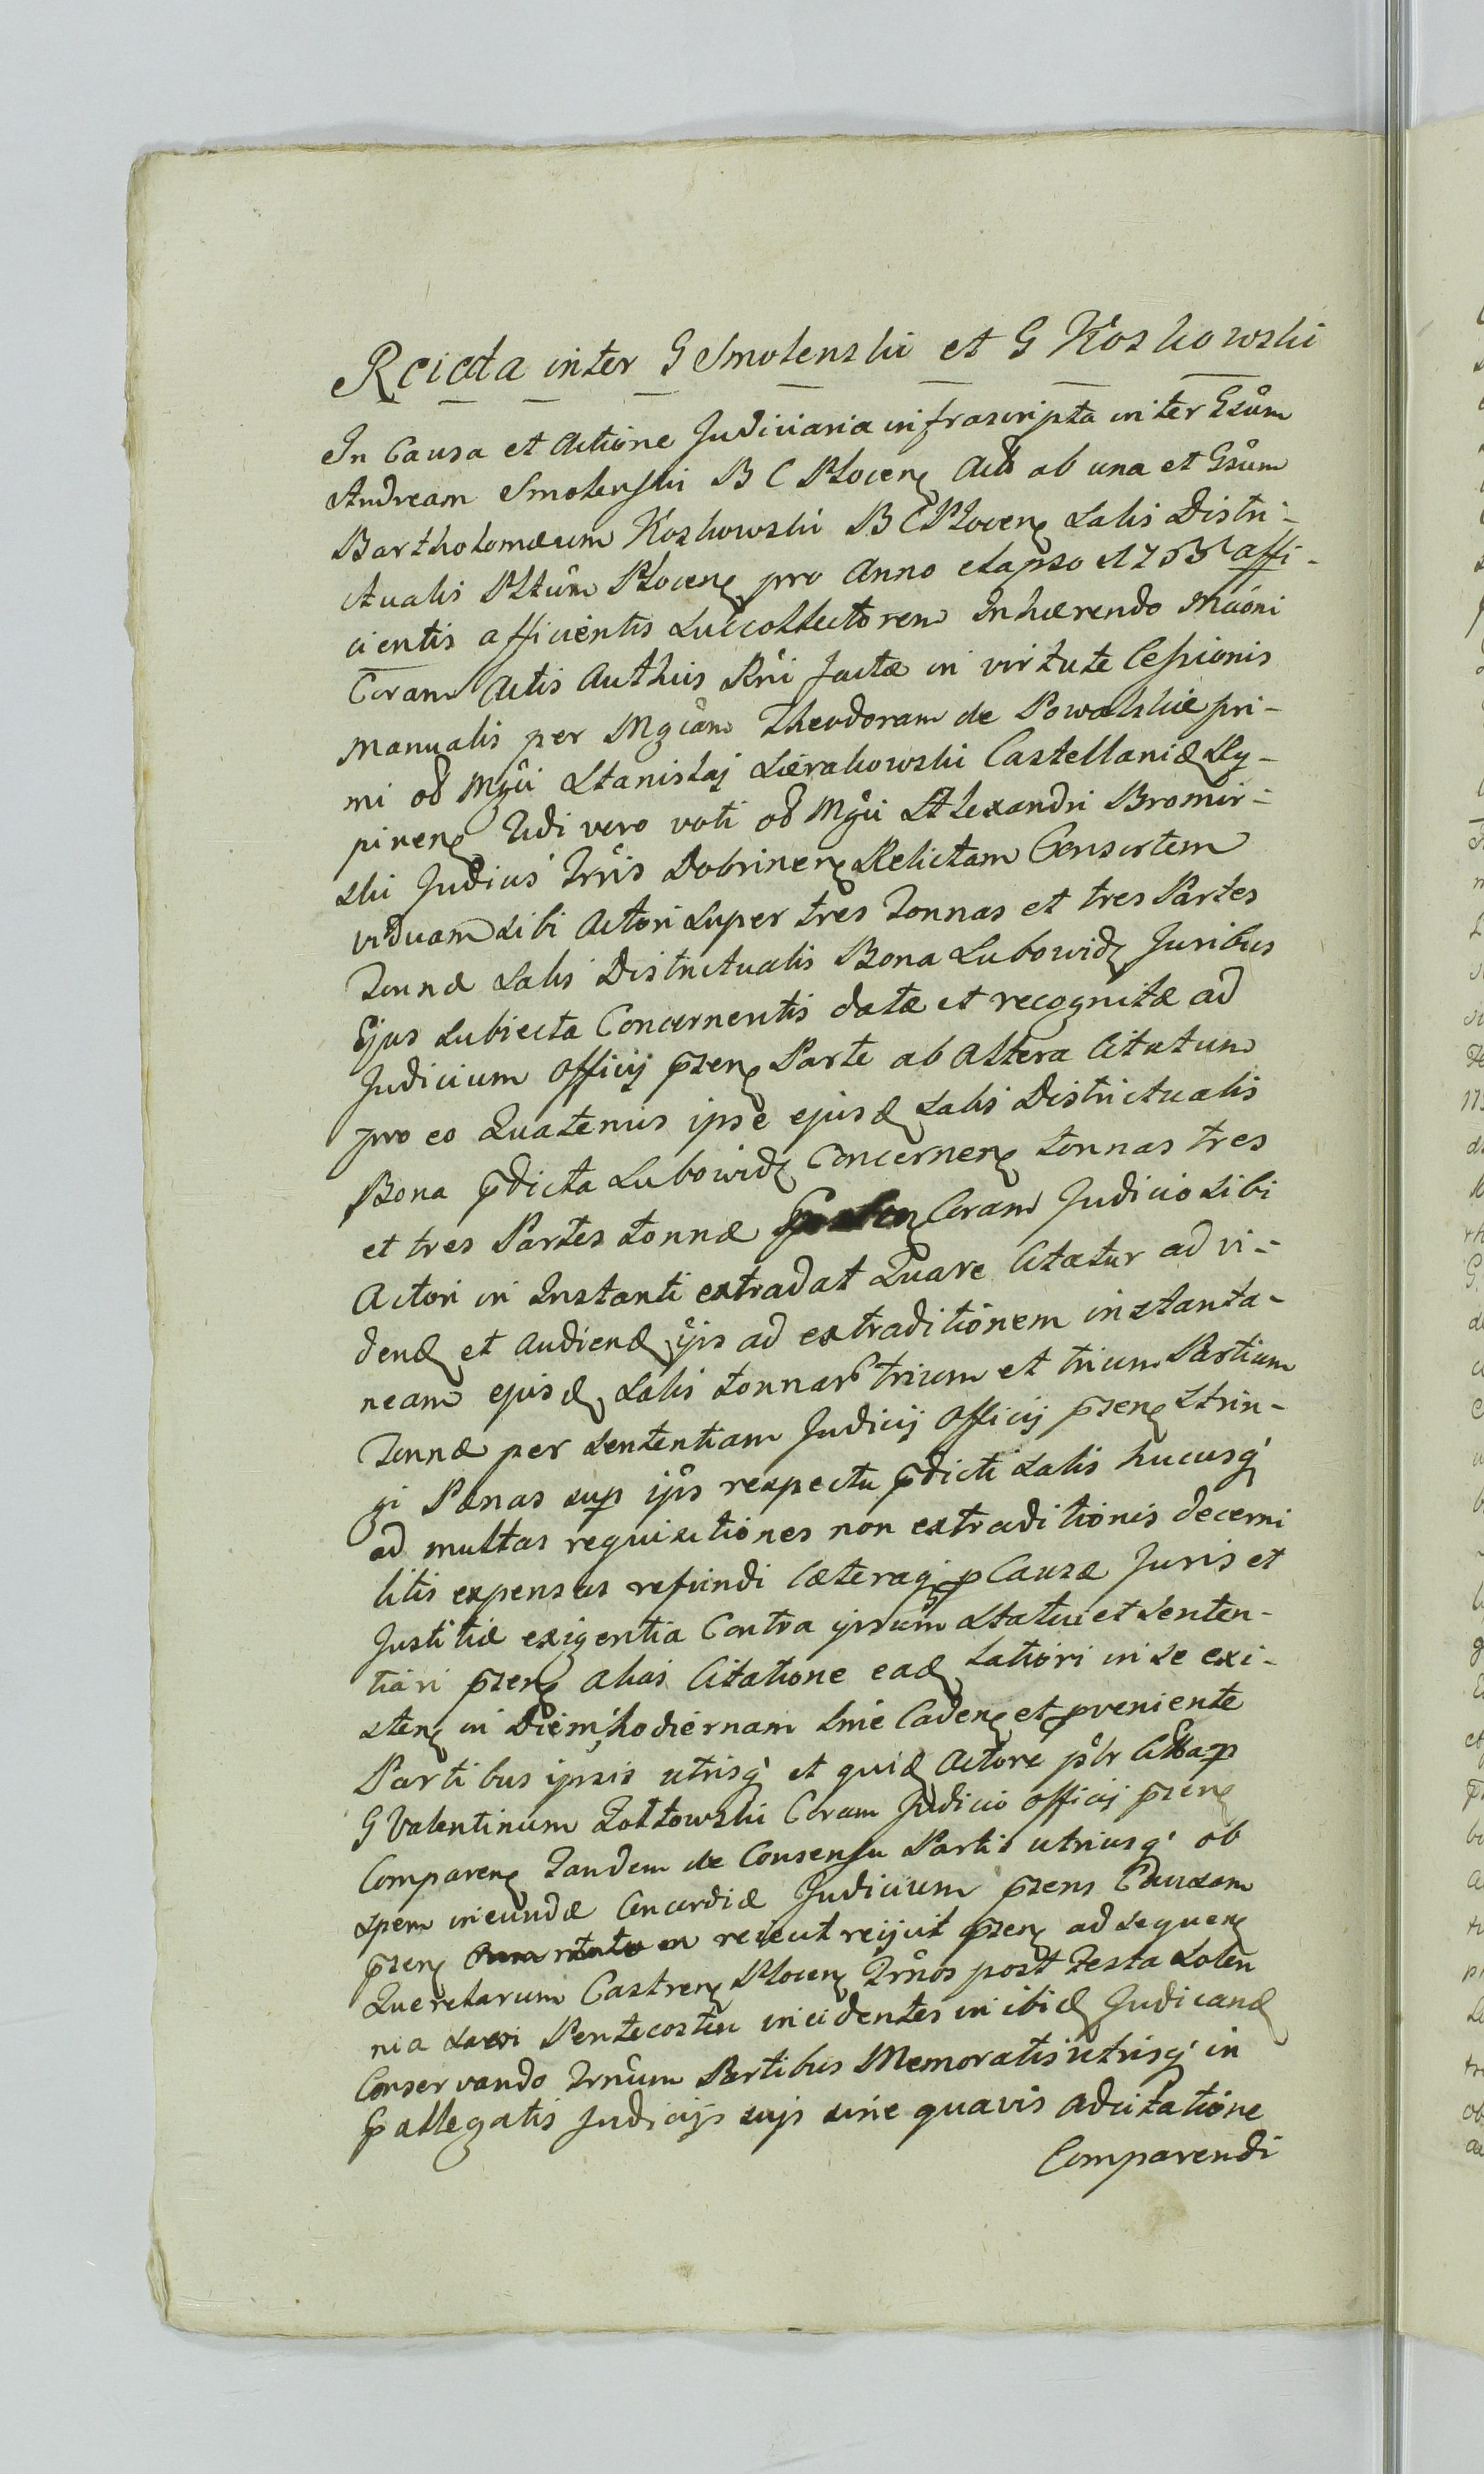 Reiecta inter G Smolenski et G Koskowski
In Causa et Actione Judiciaria infrascripta inter Gsum
Andream Smolenski B C Plocen Acto ab una et Gsum
Bartholomæum Koskowski B C Plocen Salis Distri-
ctualis Pltum Plocen pro Anno elapso affi-
cientis afficientis Succollectorem Inhærendo Maoni
Coram Actis Authcis Rni factæ in virtute Cessionis
manualis per Mgcam Theodoram de Powalskie pri-
mi od Mgci Stanislaj Sierakowski Castellani
pinen 2di vero voti od Mgci Alexandri Bromir-
ski Judicis Trris Dobrinen Relictam Consortem
viduam Sibi Actori Super tres Tonnas et tres Partes
Tonnæ Salis Districtualis Bona Lubowidz Juribus
Ejus Subiecta Concernentis datæ et recognitæ ad
Judicium Officij pzen Parte ab Altera Citatum
pro eo Quatenus ipse ejusd Salis Districtualis
Bona pdicta Lubowidz Concernen tonnas tres
et tres Partes tonnæ Coram Judicio Sibi
Actori in Instanti extradat Quare Citatur ad vi-
dend et Audiend ijs ad extraditionem instanta-
neam ejusd Salis tonnar trium et trium Partium
Tonnæ per Sententiam Judicij Officij pzen Strin-
gi Pænas sup ijs respectu pdicti Salis hucusq
ad multas requisitiones non extraditionis decerni
litis expensas refundi Cæteraq p Causæ Juris et
Justitiæ exigentia Contra ipsum Statui et Senten-
tiari pzen alias Citatione ead Latiori in Se exi-
sten in Diem hodiernam Sme Caden et pveniente
Partibus ipsis utrisq et quid Actore plr p
G Valentinum Zołtowski Coram Judicio Officij pzen
Comparen Tandem de Consensu Partis utriusq ob
spem ineundæ Concordiæ Judicium pzens Causam
pzen reiecit reijcit pzen ad Sequen
Querelarum Castren Plocen Trnos post Festa Solen
nia Sacri Pentecosten incidentes in ibid Judicand
Conservando Trnum Partibus Memoratis utrisq in
pallegatis Judicijs sujs sine quavis adcitatione
Comparendi